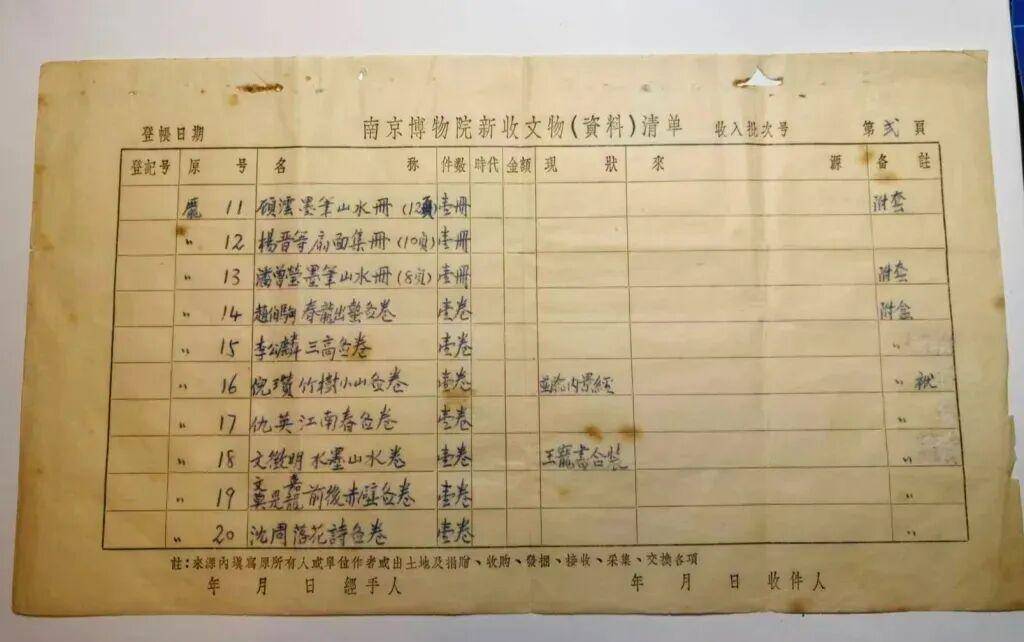 登帳日期 南京博物院新收文物(資料)清单 收入批次号 第 弐 頁
登記号 原 号 名 称 件数 時代 金額 現 狀 來 源 备 註
龐 11 顾澐墨笔山水冊(12頁) 壹冊 附套
〃 12 楊晋等扇面集冊(10頁) 壹冊
〃 13 潘曾瑩墨笔山水冊(8頁) 壹冊 附套
〃 14 趙伯驹 春龍出蟄啚卷 壹卷 附盒
〃 15 李公麟 三高啚卷 壹卷 〃
〃 16 倪瓚 竹樹小山啚卷 壹卷 内景經 〃
〃 17 仇英 江南春啚卷 壹卷 〃
〃 18 文徵明 水墨山水卷 壹卷 王寵書合裝 〃
〃 19 文嘉 莫是龍 前後赤壁啚卷 壹卷 〃
〃 20 沈周 落花詩啚卷 壹卷 〃
註:來源內填寫原所有人或單位作者或出土地及捐贈、收购、發掘、接收、采集、交換各項
年 月 日 經手人 年 月 日 收件人